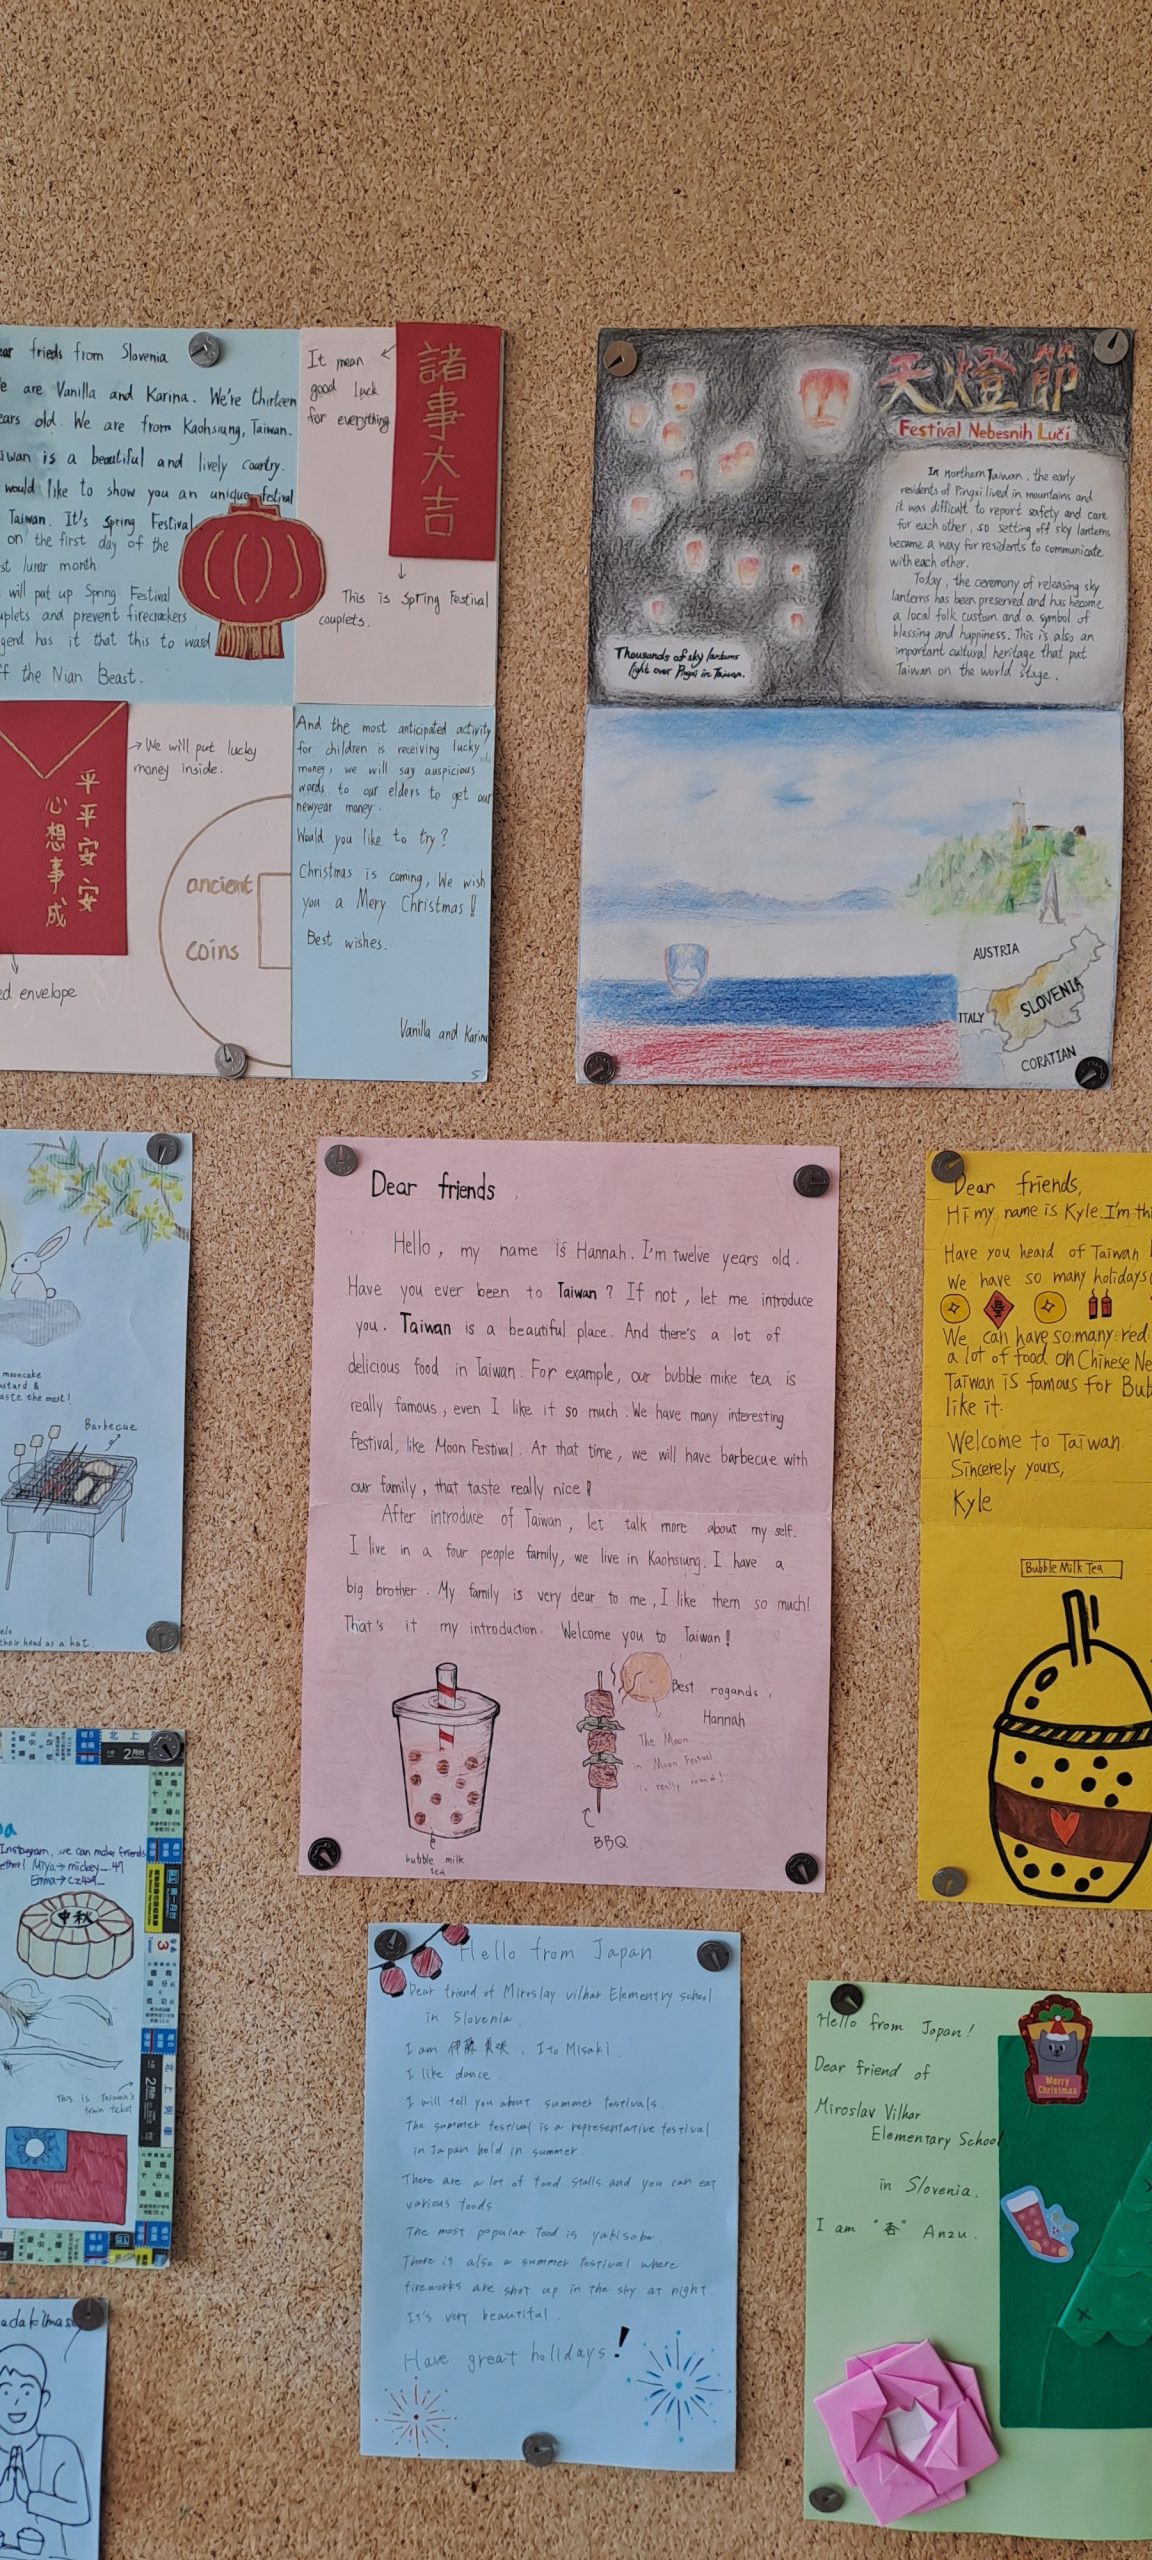 frieds from Slovenia
are Vanilla and Karina. We're thirteen
old. We are from Kaohsiung, Taiwan.
is a beautiful and lively country.
would like to show you an unique festival
Taiwan. It's Spring Festival
on the first day of the
lunar month
will put up Spring Festival
and prevent firecrackers
has it that this to ward
the Nian Beast.
It mean
good luck
for everything
諸事大吉
This is Spring Festival
couplets.
平平安安
心想事成
We will put lucky
money inside.
envelope
ancient
coins
And the most anticipated activity
for children is receiving lucky
money, we will say auspicious
words to our elders to get our
newyear money.
Would you like to try?
Christmas is coming, We wish
you a Mery Christmas!
Best wishes.
Vanilla and Karina
5
天燈節
Festival Nebesnih Luči
In northern Taiwan, the early
residents of Pingxi lived in mountains and
it was difficult to report safety and care
for each other, so setting off sky lanterns
became a way for residents to communicate
with each other.
Today, the ceremony of releasing sky
lanterns has been preserved and has become
a local folk custom and a symbol of
blessing and happiness. This is also an
important cultural heritage that put
Taiwan on the world stage.
Thousands of sky lanterns
light over Pingxi in Taiwan.
AUSTRIA
SLOVENIA
ITALY
CORATIAN
mooncake
&
taste the most!
Barbecue
their head as a hat.
Dear friends
Hello, my name is Hannah. I'm twelve years old.
Have you ever been to Taiwan? If not, let me introduce
you. Taiwan is a beautiful place. And there's a lot of
delicious food in Taiwan. For example, our bubble mike tea is
really famous, even I like it so much. We have many interesting
festival, like Moon Festival. At that time, we will have barbecue with
our family, that taste really nice!
After introduce of Taiwan, let talk more about my self.
I live in a four people family, we live in Kaohsiung. I have a
big brother. My family is very dear to me, I like them so much!
That's it my introduction. Welcome you to Taiwan!
Best rogands,
Hannah
The Moon
in Moon Festival
is really round!
BBQ
bubble milk
tea
Dear friends,
Hi my name is Kyle. I'm
Have you heard of Taiwan
We have so many holidays
We can have so many red
a lot of food on Chinese
Taiwan is famous for
like it.
Welcome to Taiwan
Sincerely yours,
Kyle
Bubble Milk Tea
北上
2月台
Instagram, we can make friends
Miya→mickey_.47
Emma→
中秋
This is Taiwan's
train ticket
Hello from Japan
Dear friend of Miroslav vilhar Elementry school
in Slovenia.
I am 伊藤 美咲, Ito Misaki.
I like dance.
I will tell you about summer festivals.
The summer festival is a representative festival
in Japan held in summer.
There are a lot of food stalls and you can eat
various foods
The most popular food is yakisoba.
There is also a summer festival where
fireworks are shot up in the sky at night.
It's very beautiful.
Have great holidays!
Hello from Japan!
Dear friend of
Miroslav Vilhar
Elementary School
in Slovenia.
I am "杏" Anzu.
Merry
Christmas